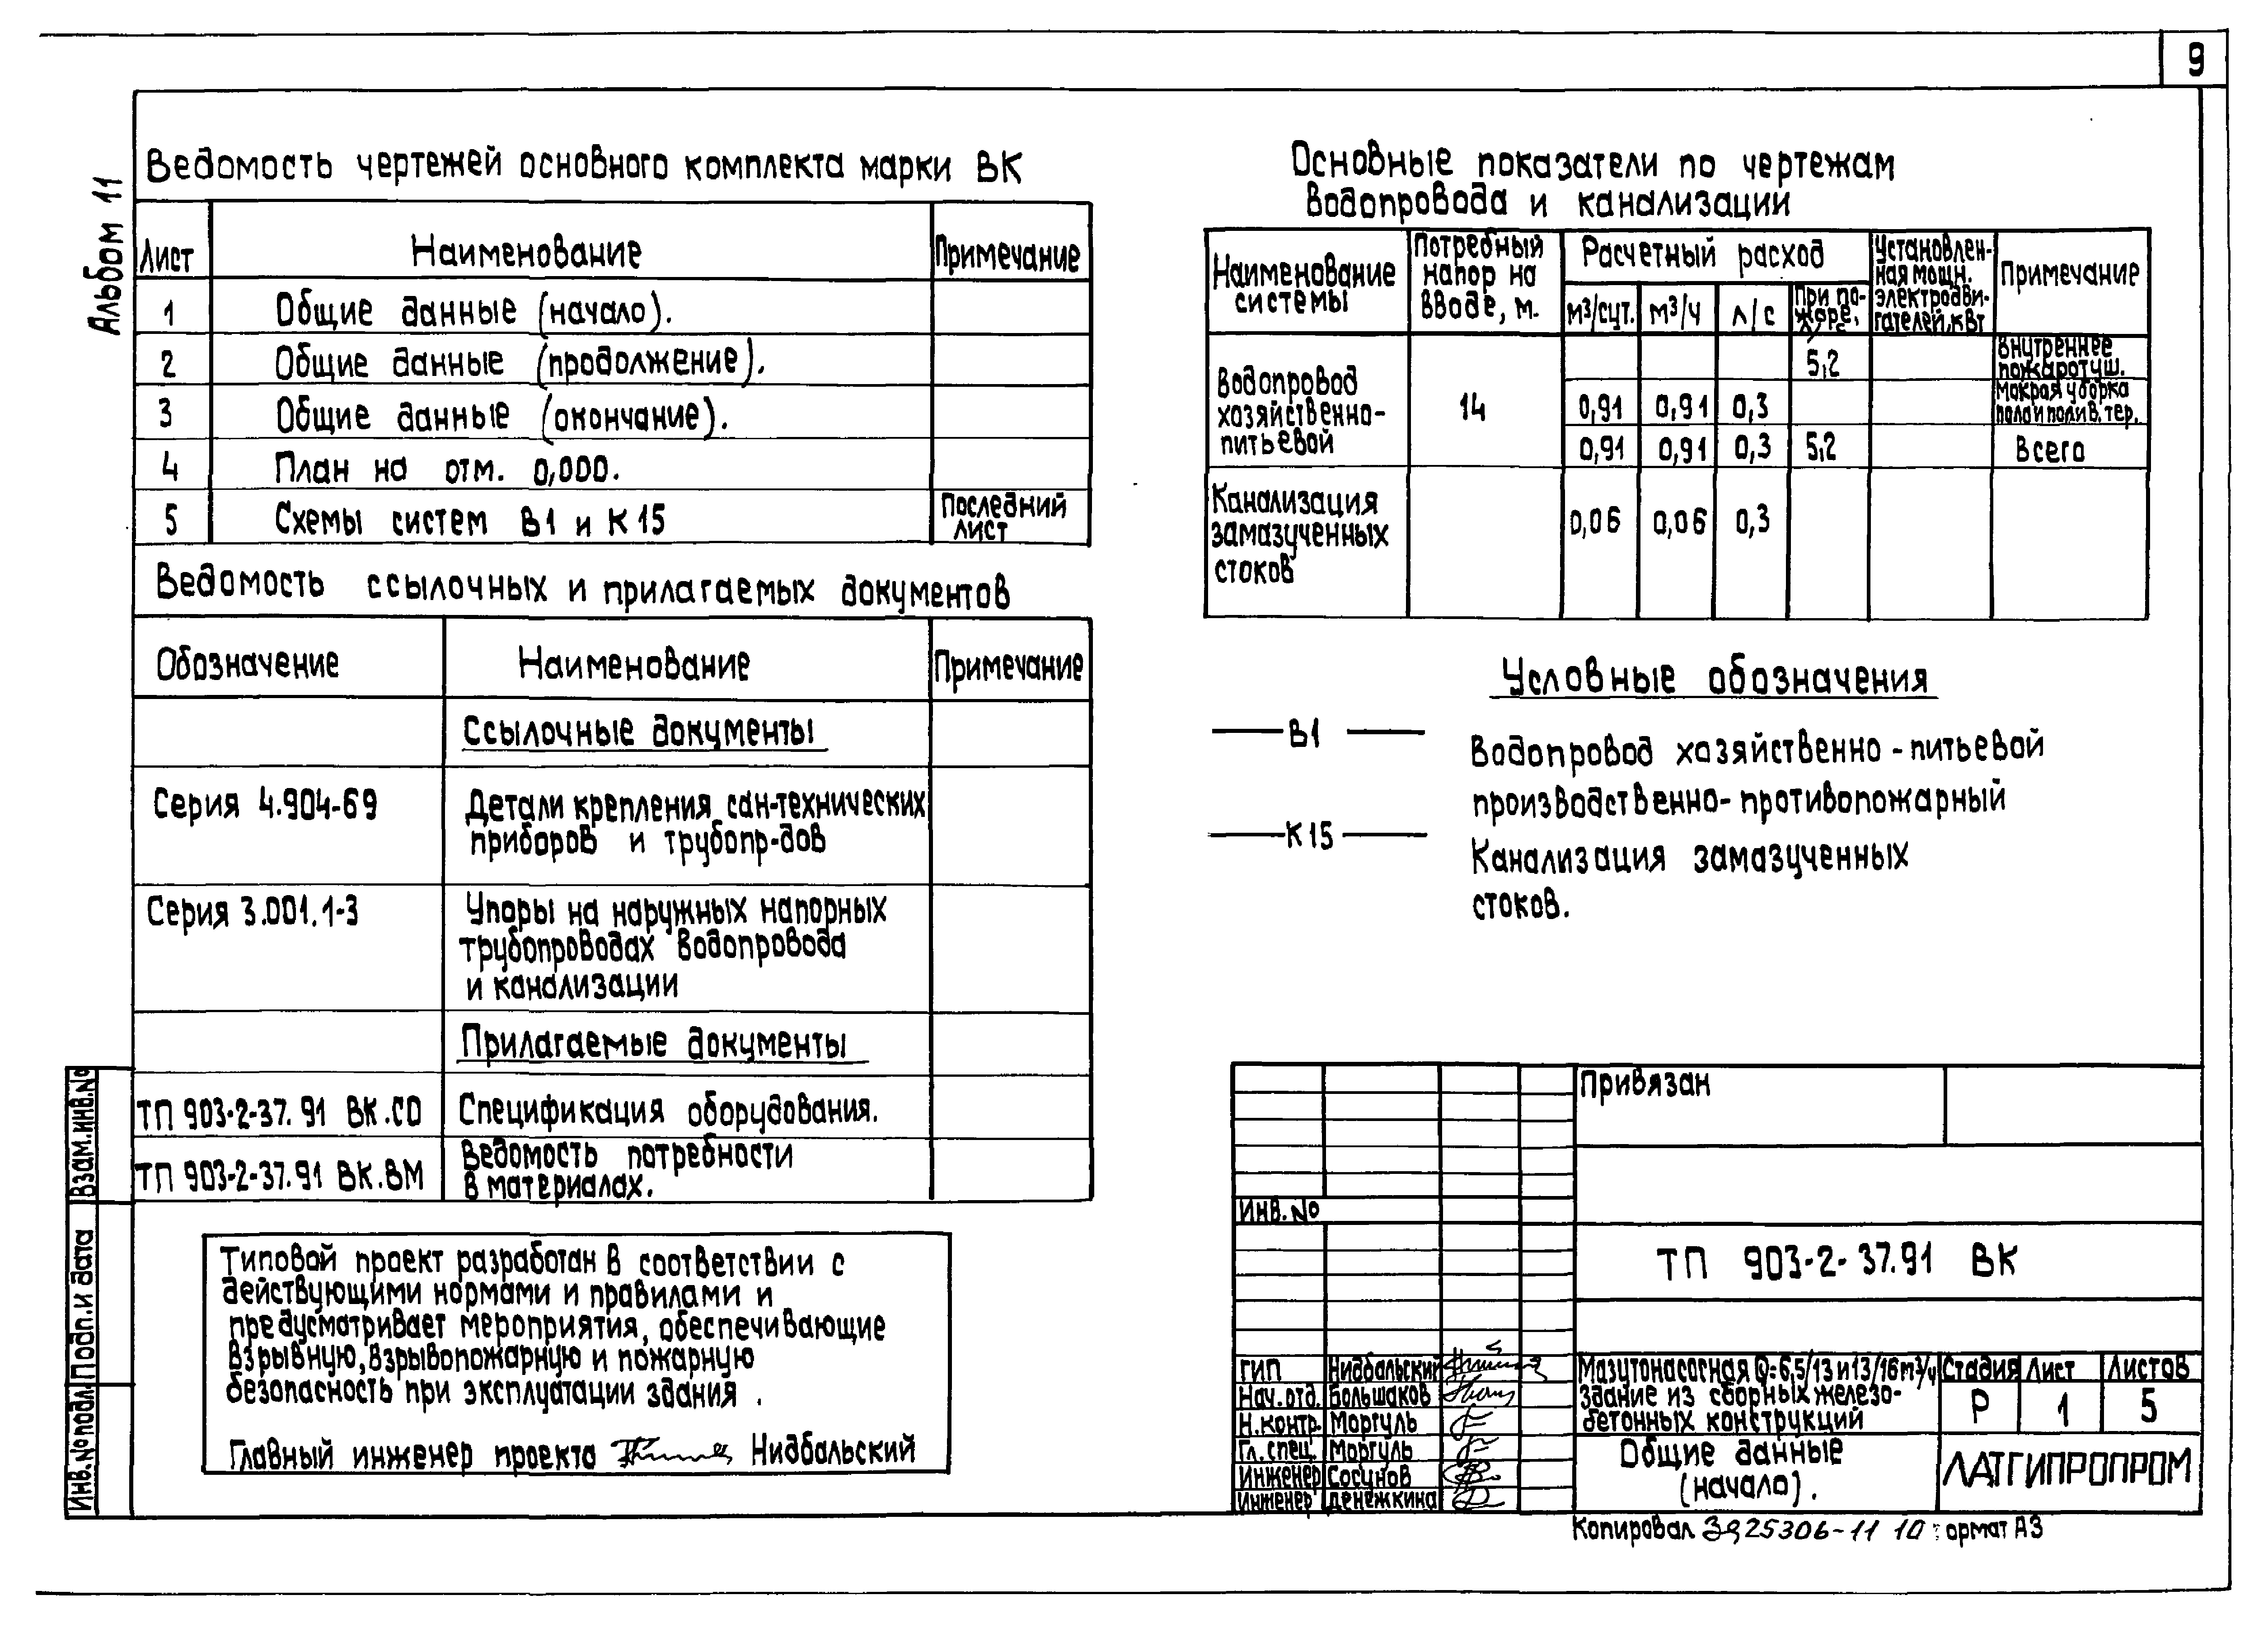 9
Альбом 11
Ведомость чертежей основного комплекта марки ВК
Лист Наименование Примечание
1 Общие данные (начало).
2 Общие данные (продолжение).
3 Общие данные (окончание).
4 План на отм. 0,000.
5 Схемы систем В1 и К15 Последний
лист
Ведомость ссылочных и прилагаемых документов
Обозначение Наименование Примечание
Ссылочные документы
Серия 4.904-69 Детали крепления сан-технических
приборов и трубопр-дов
Серия 3.001.1-3 Упоры на наружных напорных
трубопроводах водопровода
и канализации
Прилагаемые документы
ТП 903-2-37.91 ВК.СО Спецификация оборудования.
ТП 903-2-37.91 ВК.ВМ Ведомость потребности
в материалах.
Типовой проект разработан в соответствии с
действующими нормами и правилами и
предусматривает мероприятия, обеспечивающие
взрывную, взрывопожарную и пожарную
безопасность при эксплуатации здания .
Главный инженер проекта Нидбальский
Взам.инв.№
Подп.и дата
Инв.№подл.
Основные показатели по чертежам
водопровода и канализации
Наименование
системы
Потребный
напор на
вводе, м.
Расчетный расход
м³/сут. м³/ч л/с При по-
жаре,
Установлен-
ная мощн.
электродви-
гателей,кВт
Примечание
Водопровод
хозяйственно-
питьевой
14
5,2 Внутреннее
пожаротуш.
0,91 0,91 0,3 Мокрая уборка
пола и полив. тер.
0,91 0,91 0,3 5,2 Всего
Канализация
замазученных
стоков
0,06 0,06 0,3
Условные обозначения
В1 Водопровод хозяйственно-питьевой
производственно-противопожарный
К15 Канализация замазученных
стоков.
Привязан
Инв.№
ТП 903-2-37.91 ВК
ГИП Нидбальский
Нач.отд. Большаков
Н.контр. Моргуль
Гл.спец. Моргуль
Инженер Сосунов
Инженер Денежкина
Мазутонасосная Q=6,5/13 и 13/16 м³/ч
Здание из сборных железо-
бетонных конструкций
Стадия Лист Листов
Р 1 5
Общие данные
(начало).
ЛАТГИПРОПРОМ
Копировал 25306-11 10 ормат А3